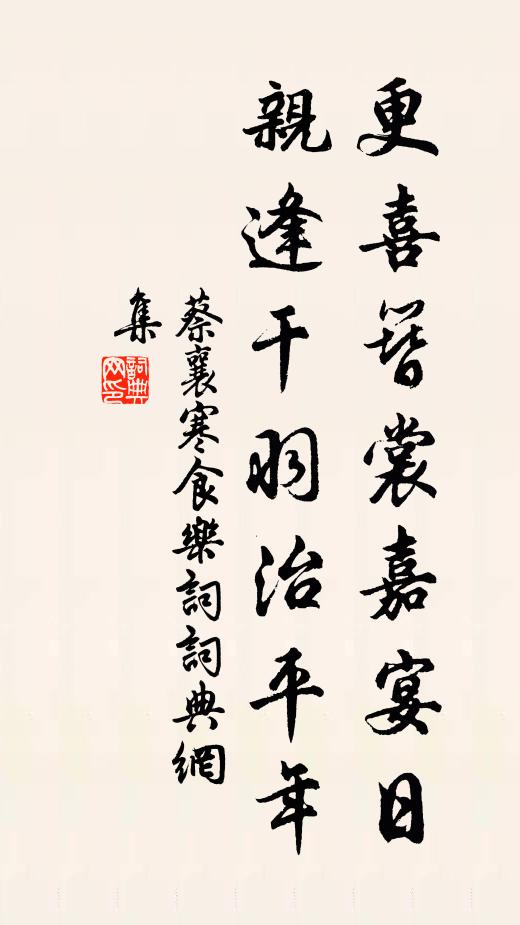 更喜簪裳嘉宴日
親逢干羽治平年
蔡襄寒食樂詞詞典網
集
詞典
网印